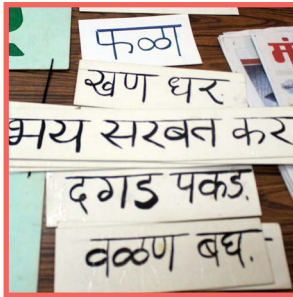 फळा
खण धर.
भय सरबत कर
दगड पकड.
वळण बघ.